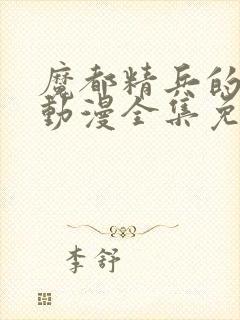 魔都精兵的
動漫全集免
李舒